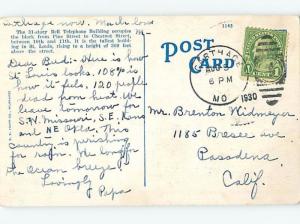 The 31-story Bell Telephone Building occupies
the block from Pine Street to Chestnut Street,
between 10th and 11th. It is the tallest building
in St. Louis, rising to a height of 398 feet
above the street.
Dear Bud: Here is how
St Louis looks. 106° is
how it feels. 120 people
dead from heat we
leave tomorrow for
S.W. Missouri, S.E. Kans
and NE Okla. This
country is perishing
for rain. He long for
the ocean breeze
Lovingly
Papa
POST
CARD
AUG
6 PM
MO
1930
1
Mr. Brenton Widmeyer
1185 Bresee ave
Pasadena
Calif.